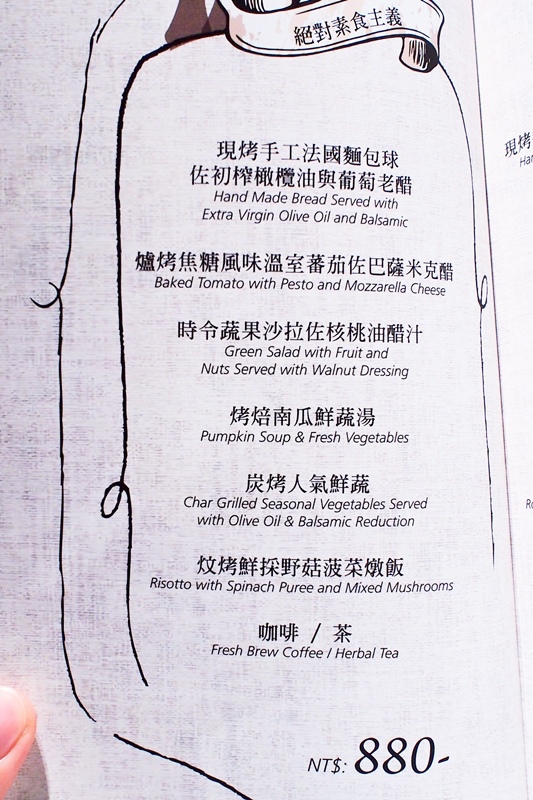 絕對素食主義
現烤手工法國麵包球
佐初榨橄欖油與葡萄老醋
Hand Made Bread Served with
Extra Virgin Olive Oil and Balsamic
爐烤焦糖風味溫室蕃茄佐巴薩米克醋
Baked Tomato with Pesto and Mozzarella Cheese
時令蔬果沙拉佐核桃油醋汁
Green Salad with Fruit and
Nuts Served with Walnut Dressing
烤焙南瓜鮮蔬湯
Pumpkin Soup & Fresh Vegetables
炭烤人氣鮮蔬
Char Grilled Seasonal Vegetables Served
with Olive Oil & Balsamic Reduction
炆烤鮮採野菇菠菜燉飯
Risotto with Spinach Puree and Mixed Mushrooms
咖啡 / 茶
Fresh Brew Coffee / Herbal Tea
NT$: 880-
現烤